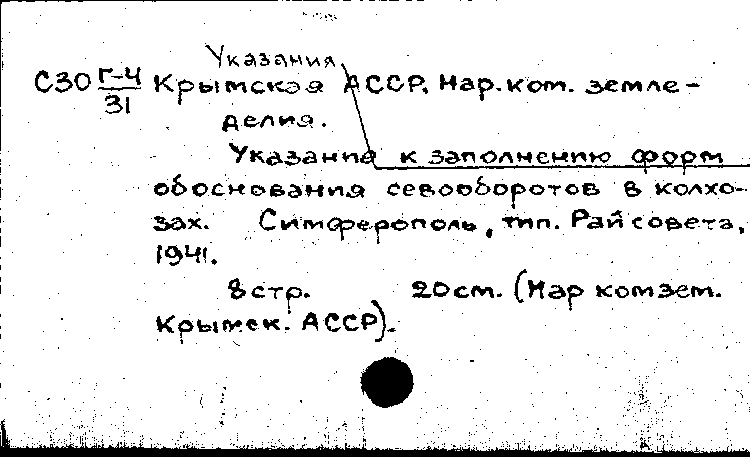 Указания
С30 Г-4/31 Крымская АССР. Нар.ком. земле-
делия.
Указания к заполнению форм
обоснования севооборотов в колхо-
зах. Симферополь, тип. Райсовета,
1941.
8 стр. 20 см. (Нар комзем.
Крымск. АССР).